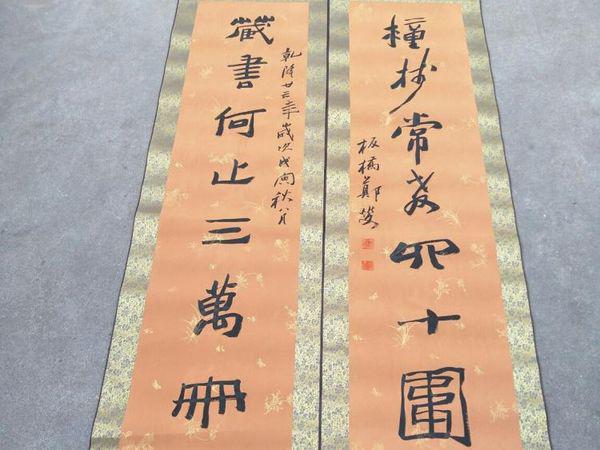 種樹常教四十圍
板橋鄭燮
藏書何止三萬冊
乾隆廿三年歲次戊寅秋八月